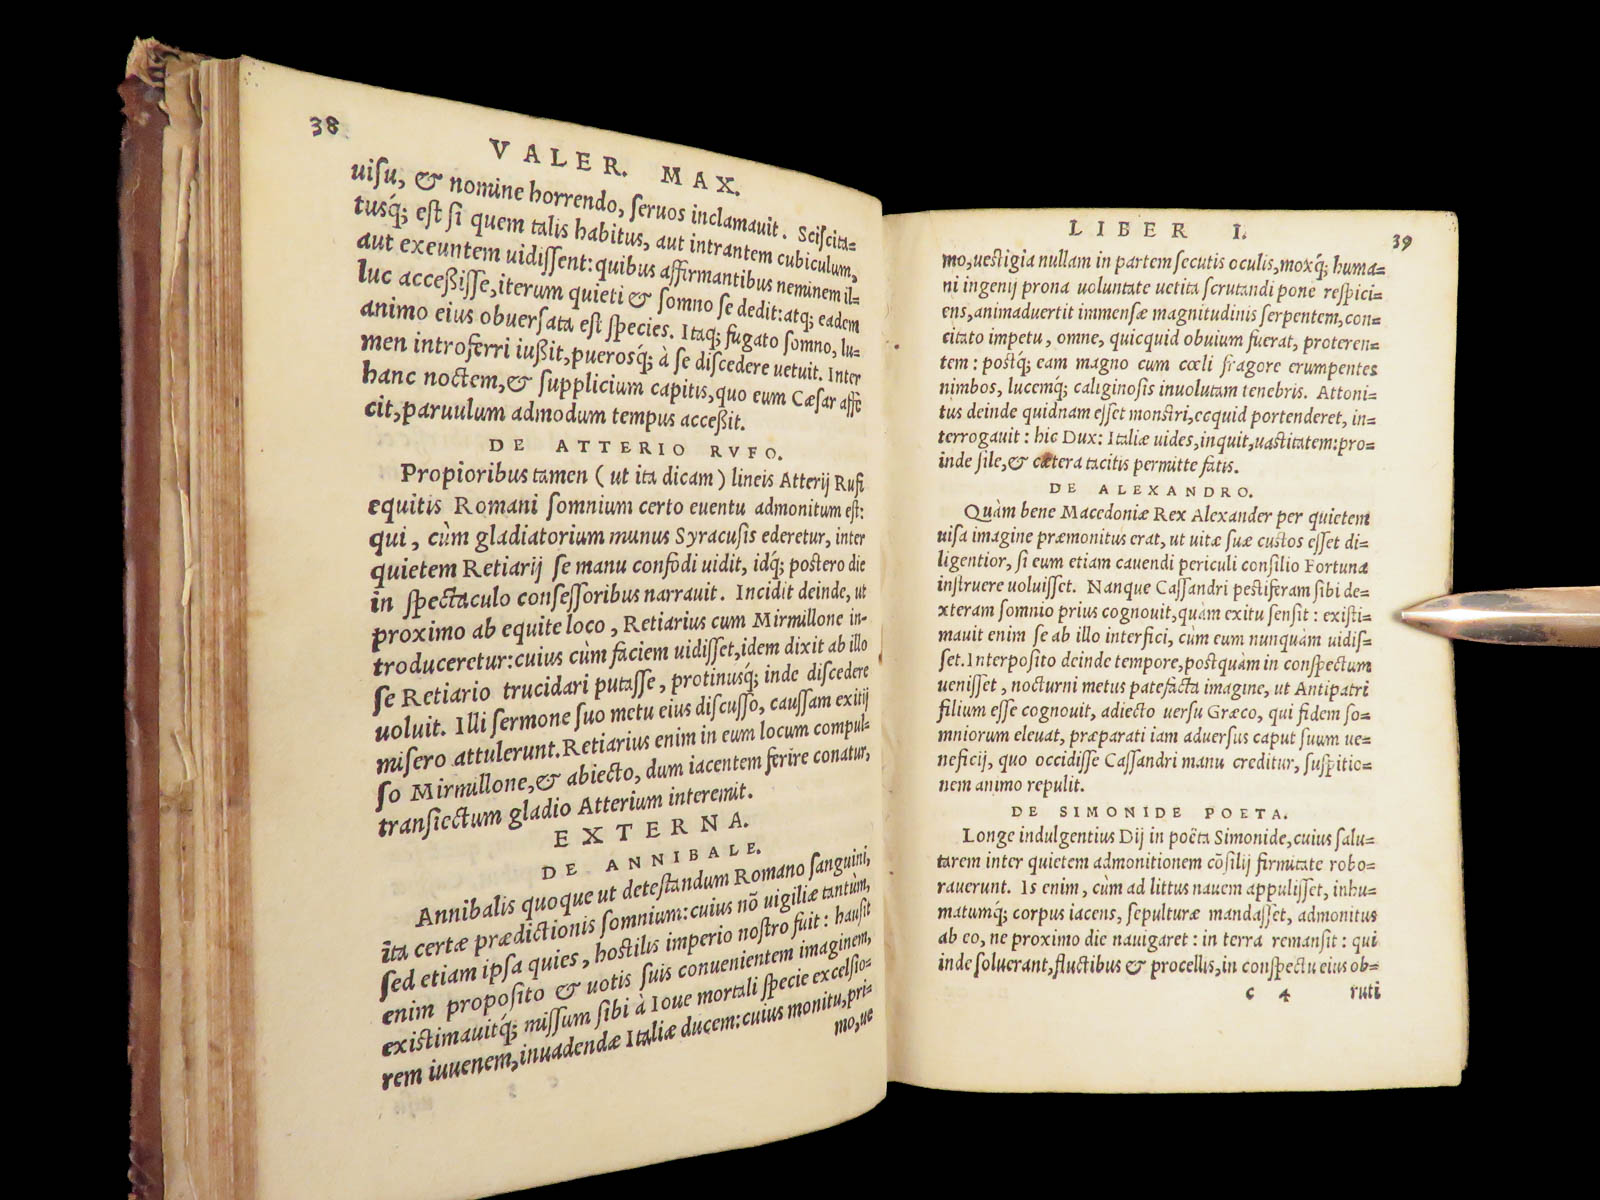 38
VALER. MAX.
uiſu, & nomine horrendo, ſeruos inclamauit. Sciſcita=
tusq́; eſt ſi quem talis habitus, aut intrantem cubiculum,
aut exeuntem uidiſſent: quibus affirmantibus neminem il=
luc acceßiſſe, iterum quieti & ſomno ſe dedit: atq; eadem
animo eius obuerſata eſt ſpecies. Itaq; fugato ſomno, lu=
men introferri iußit, puerosq́; à ſe diſcedere uetuit. Inter
hanc noctem, & ſupplicium capitis, quo eum Cæſar affē
cit, paruulum admodum tempus acceßit.
DE ATTERIO RVFO.
Propioribus tamen (ut ita dicam) lineis Atterij Rufi
equitis Romani ſomnium certo euentu admonitum eſt:
qui, cùm gladiatorium munus Syracuſis ederetur, inter
quietem Retiarij ſe manu confodi uidit, idq́; poſtero die
in ſpectaculo conſeſſoribus narrauit. Incidit deinde, ut
proximo ab equite loco, Retiarius cum Mirmillone in=
troduceretur: cuius cùm faciem uidiſſet, idem dixit ab illo
ſe Retiario trucidari putaſſe, protinusq́; inde diſcedere
uoluit. Illi ſermone ſuo metu eius diſcuſſo, cauſſam exitij
miſero attulerunt. Retiarius enim in eum locum compul=
ſo Mirmillone, & abiecto, dum iacentem ferire conatur,
transiectum gladio Atterium interemit.
EXTERNA.
DE ANNIBALE.
Annibalis quoque ut deteſtandum Romano ſanguini,
ita certæ prædictionis ſomnium: cuius nō uigiliæ tantùm,
ſed etiam ipſa quies, hoſtilis imperio noſtro fuit: hauſit
enim propoſito & uotis ſuis conuenientem imaginem,
existimauitq́; miſſum ſibi à Ioue mortali ſpecie excelſio=
rem iuuenem, inuadendæ Italiæ ducem: cuius monitu, pri=
mo, ue
LIBER I.
39
mo, ueſtigia nullam in partem ſecutis oculis, moxq́; huma=
ni ingenij prona uoluntate uetita ſcrutandi pone reſpici=
ens, animaduertit immenſæ magnitudinis ſerpentem, con=
citato impetu, omne, quicquid obuium fuerat, proteren=
tem: poſtq́; eam magno cum cœli fragore erumpentes
nimbos, lucemq́; caliginoſis inuolutam tenebris. Attoni=
tus deinde quidnam eſſet monſtri, ecquid portenderet, in=
terrogauit: hic Dux: Italiæ uides, inquit, uaſtitatem: pro=
inde ſile, & cætera tacitis permitte fatis.
DE ALEXANDRO.
Quàm bene Macedoniæ Rex Alexander per quietem
uiſa imagine præmonitus erat, ut uitæ ſuæ cuſtos eſſet di=
ligentior, ſi eum etiam cauendi periculi conſilio Fortuna
inſtruere uoluiſſet. Nanque Caſſandri peſtiferam ſibi de=
xteram ſomnio prius cognouit, quàm exitu ſenſit: exiſti=
mauit enim ſe ab illo interfici, cùm eum nunquàm uidiſ=
ſet. Interpoſito deinde tempore, poſtquàm in conſpectum
ueniſſet, nocturni metus patefacta imagine, ut Antipatri
filium eſſe cognouit, adiecto uerſu Græco, qui fidem ſo=
mniorum eleuat, præparati iam aduerſus caput ſuum ue=
neficij, quo occidiſſe Caſſandri manu creditur, ſuſpitio=
nem animo repulit.
DE SIMONIDE POETA.
Longe indulgentius Dij in poëta Simonide, cuius ſalu=
tarem inter quietem admonitionem cōſilij firmitate robo=
rauerunt. Is enim, cùm ad littus nauem appuliſſet, inhu=
matumq́; corpus iacens, ſepulturæ mandaſſet, admonitus
ab eo, ne proximo die nauigaret: in terra remanſit: qui
inde ſoluerant, fluctibus & procellis, in conſpectu eius ob=
c 4 ruti